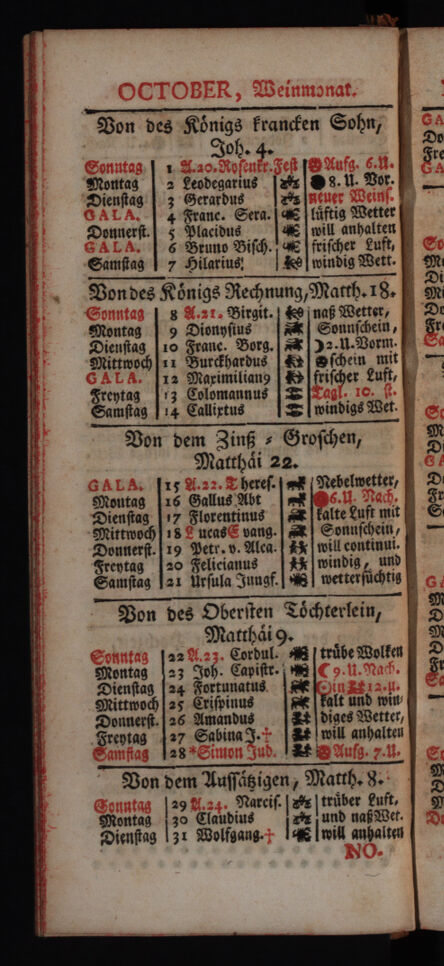 OCTOBER, Weinmonat.
Von des Königs krancken Sohn,
Joh. 4.
Sonntag 1 A.20. Rosenkr. Fest Aufg. 6. U.
Montag 2 Leodegarius 8. U. Vor.
Dienstag 3 Gerardus neuer Weins.
GALA. 4 Franc. Sera. lüftig Wetter
Donnerst. 5 Placidus will anhalten
GALA. 6 Bruno Bisch. frischer Luft,
Samstag 7 Hilarius windig Wett.
Von des Königs Rechnung, Matth. 18.
Sonntag 8 A.21. Birgit. naß Wetter,
Montag 9 Dionysius Sonnschein,
Dienstag 10 Franc. Borg. ☽2. U. Vorm.
Mittwoch 11 Burckhardus schein mit
GALA. 12 Maximilian9 frischer Luft,
Freytag 13 Colomannus Tagl. 10. st.
Samstag 14 Callixtus windigs Wet.
Von dem Zinß-Groschen,
Matthäi 22.
GALA. 15 A.22. Theres. Nebelwetter,
Montag 16 Gallus Abt 6. U. Nach.
Dienstag 17 Florentinus kalte Luft mit
Mittwoch 18 Lucas Evang. Sonnschein,
Donnerst. 19 Petr. v. Alca. will continui.
Freytag 20 Felicianus windig, und
Samstag 21 Ursula Jungf. wettersüchtig
Von des Obersten Töchterlein,
Matthäi 9.
Sonntag 22 A.23. Cordul. trübe Wolken
Montag 23 Joh. Capistr. ☾9. U. Nach.
Dienstag 24 Fortunatus ☉in 12. u.
Mittwoch 25 Crispinus kalt und win-
Donnerst. 26 Amandus diges Wetter,
Freytag 27 Sabina J.† will anhalten
Samstag 28 *Simon Jud. Aufg. 7. U.
Von dem Aussätzigen, Matth. 8.
Sonntag 29 A.24. Narcis. trüber Luft,
Montag 30 Claudius und naß Wet.
Dienstag 31 Wolfgang.† will anhalten
NO.